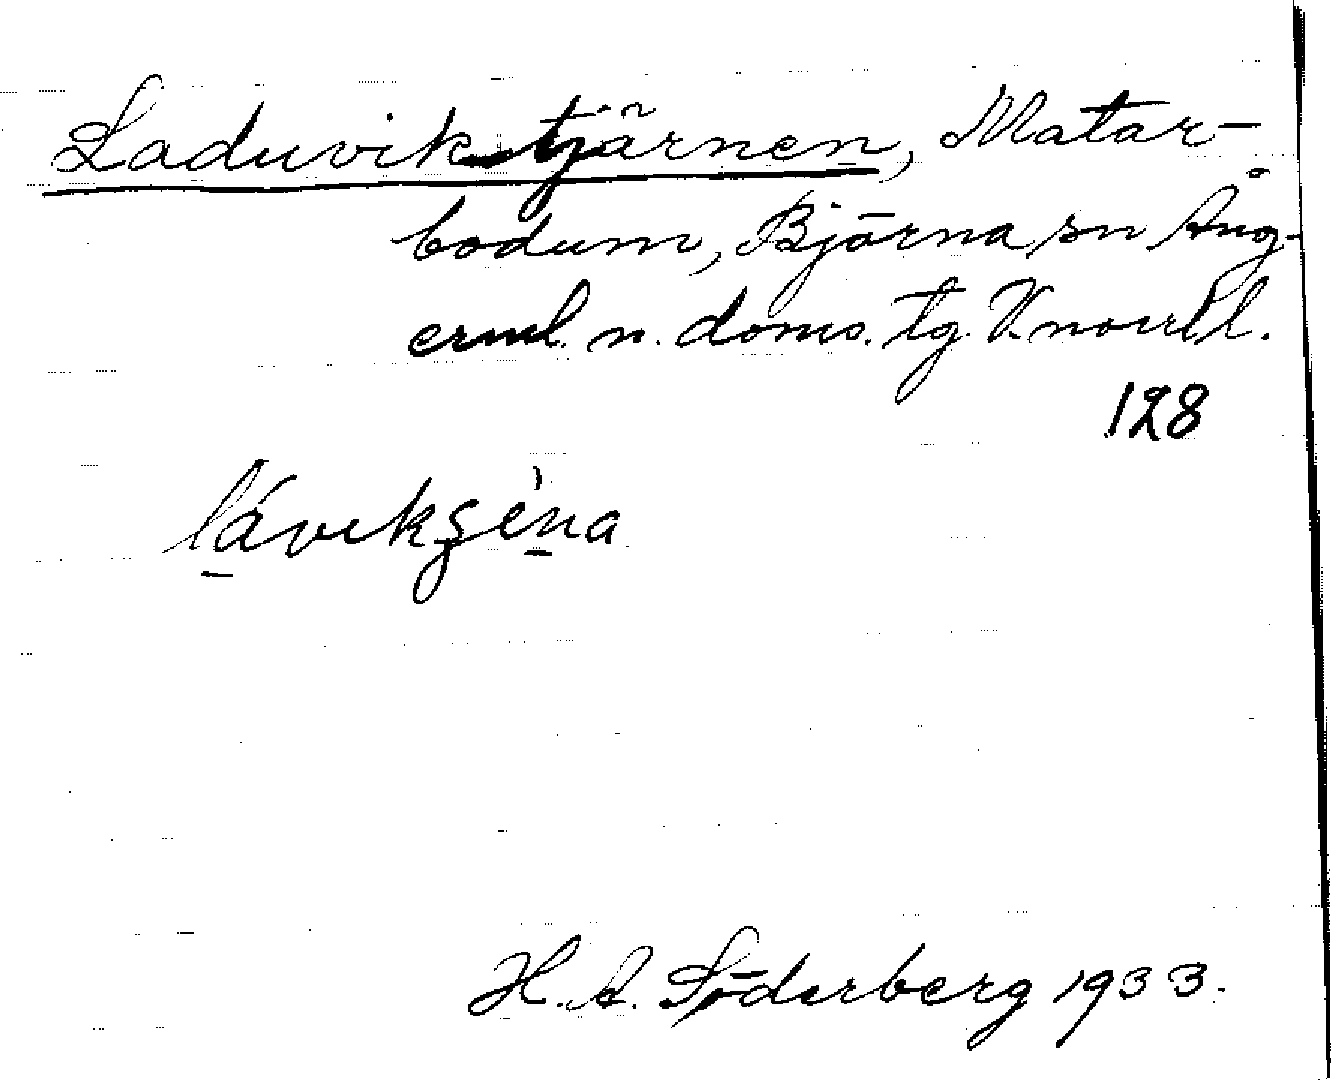 Laduvikstjärnen, Matar-
bodum, Björna sn Ång-
erml. n. doms. tg. V.norrl.
128
lávikşèna
H. A. Söderberg 1933.